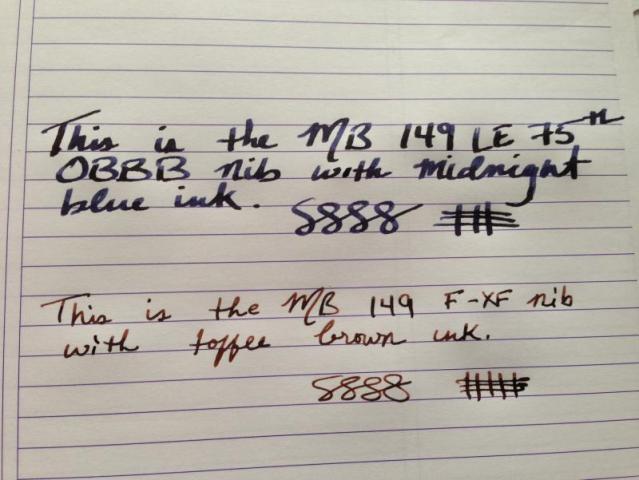 This is the MB 149 LE 75th
OBBB nib with midnight
blue ink.
8888
This is the MB 149 F-XF nib
with toffee brown ink.
8888